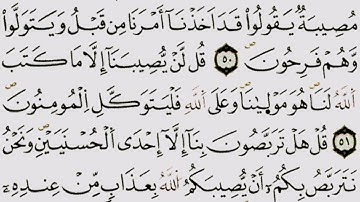 مُصِيبَةٌ يَقُولُوا۟ قَدْ أَخَذْنَآ أَمْرَنَا مِن قَبْلُ وَيَتَوَلَّوا۟
وَّهُمْ فَرِحُونَ ۝٥٠ قُل لَّن يُصِيبَنَآ إِلَّا مَا كَتَبَ
ٱللَّهُ لَنَا هُوَ مَوْلَىٰنَا وَعَلَى ٱللَّهِ فَلْيَتَوَكَّلِ ٱلْمُؤْمِنُونَ
۝٥١ قُلْ هَلْ تَرَبَّصُونَ بِنَآ إِلَّآ إِحْدَى ٱلْحُسْنَيَيْنِ وَنَحْنُ
نَتَرَبَّصُ بِكُمُۥٓ أَنْ يُّصِيبَكُمُ ٱللَّهُ بِعَذَابٍ مِّنْ عِندِهِۦٓ